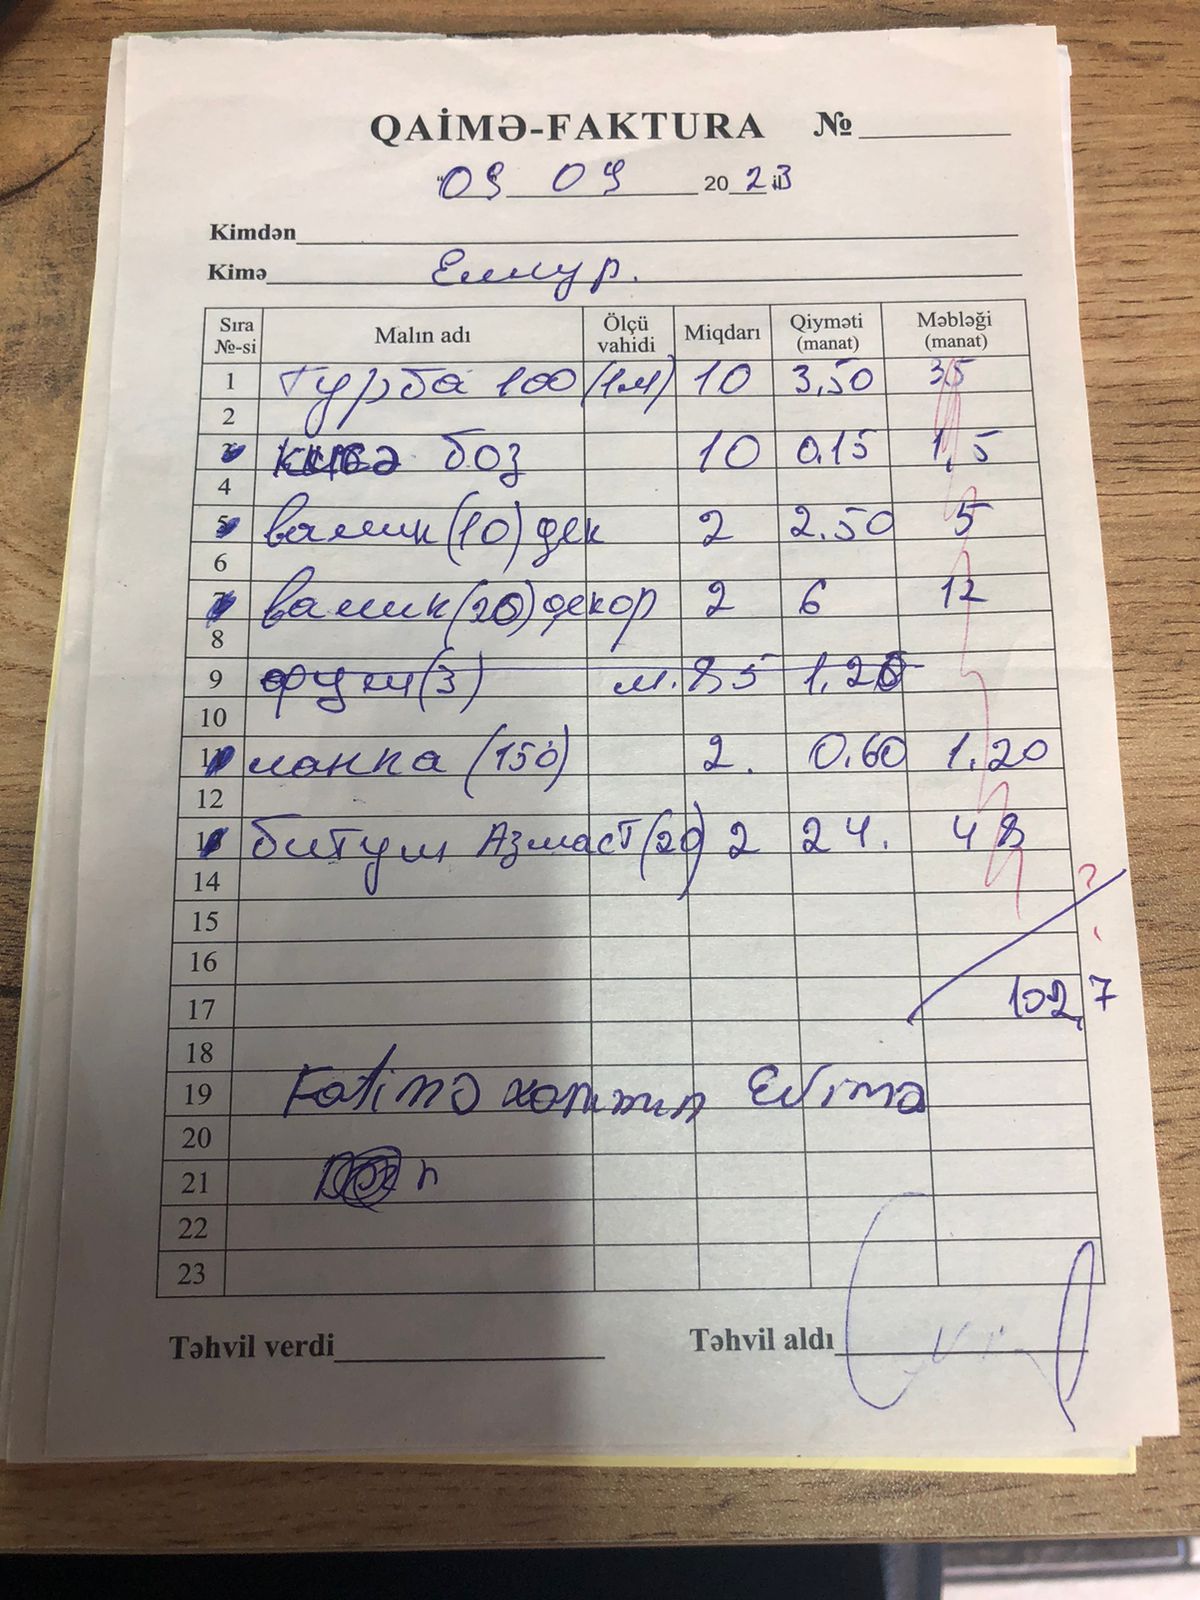 QAİMƏ-FAKTURA №
"09 09 2023 il
Kimdən
Kimə Елнур.
Sıra №-si Malın adı Ölçü vahidi Miqdarı Qiyməti (manat) Məbləği (manat)
1 Турба 100 (1м) 10 3,50 35
2
кисə боз 10 0.15 1,5
4
5 валик (10) дек 2 2.50 5
6
7 валик (20) декор 2 6 12
8
9 фум (3) м. 85 1.20
10
11 лапка (150) 2. 0.60 1.20
12
битум Азмаст (20) 2 24. 48
14
15
16
17 102,7
18
19 Fatimə ханımın Evinə
20
21
22
23
Təhvil verdi Təhvil aldı